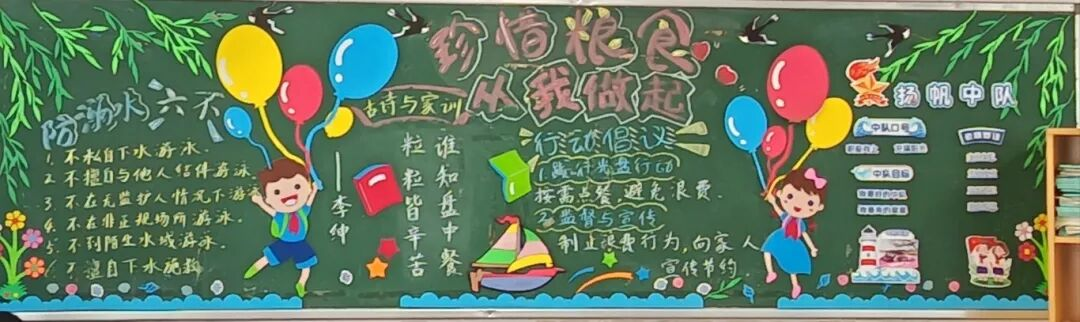 珍惜粮食
从我做起
防溺水六不
1. 不私自下水游泳.
2. 不擅自与他人结伴游泳
3. 不在无监护人情况下游泳
4. 不在非正规场所游泳.
5. 不到陌生水域游泳.
6. 不擅自下水施救
古诗与家训
谁知盘中餐
粒粒皆辛苦
——李绅
行动倡议
1. 践行光盘行动
按需点餐 避免浪费.
2. 监督与宣传
制止浪费行为,向家人
宣传节约.
扬帆中队
中队口号
中队目标